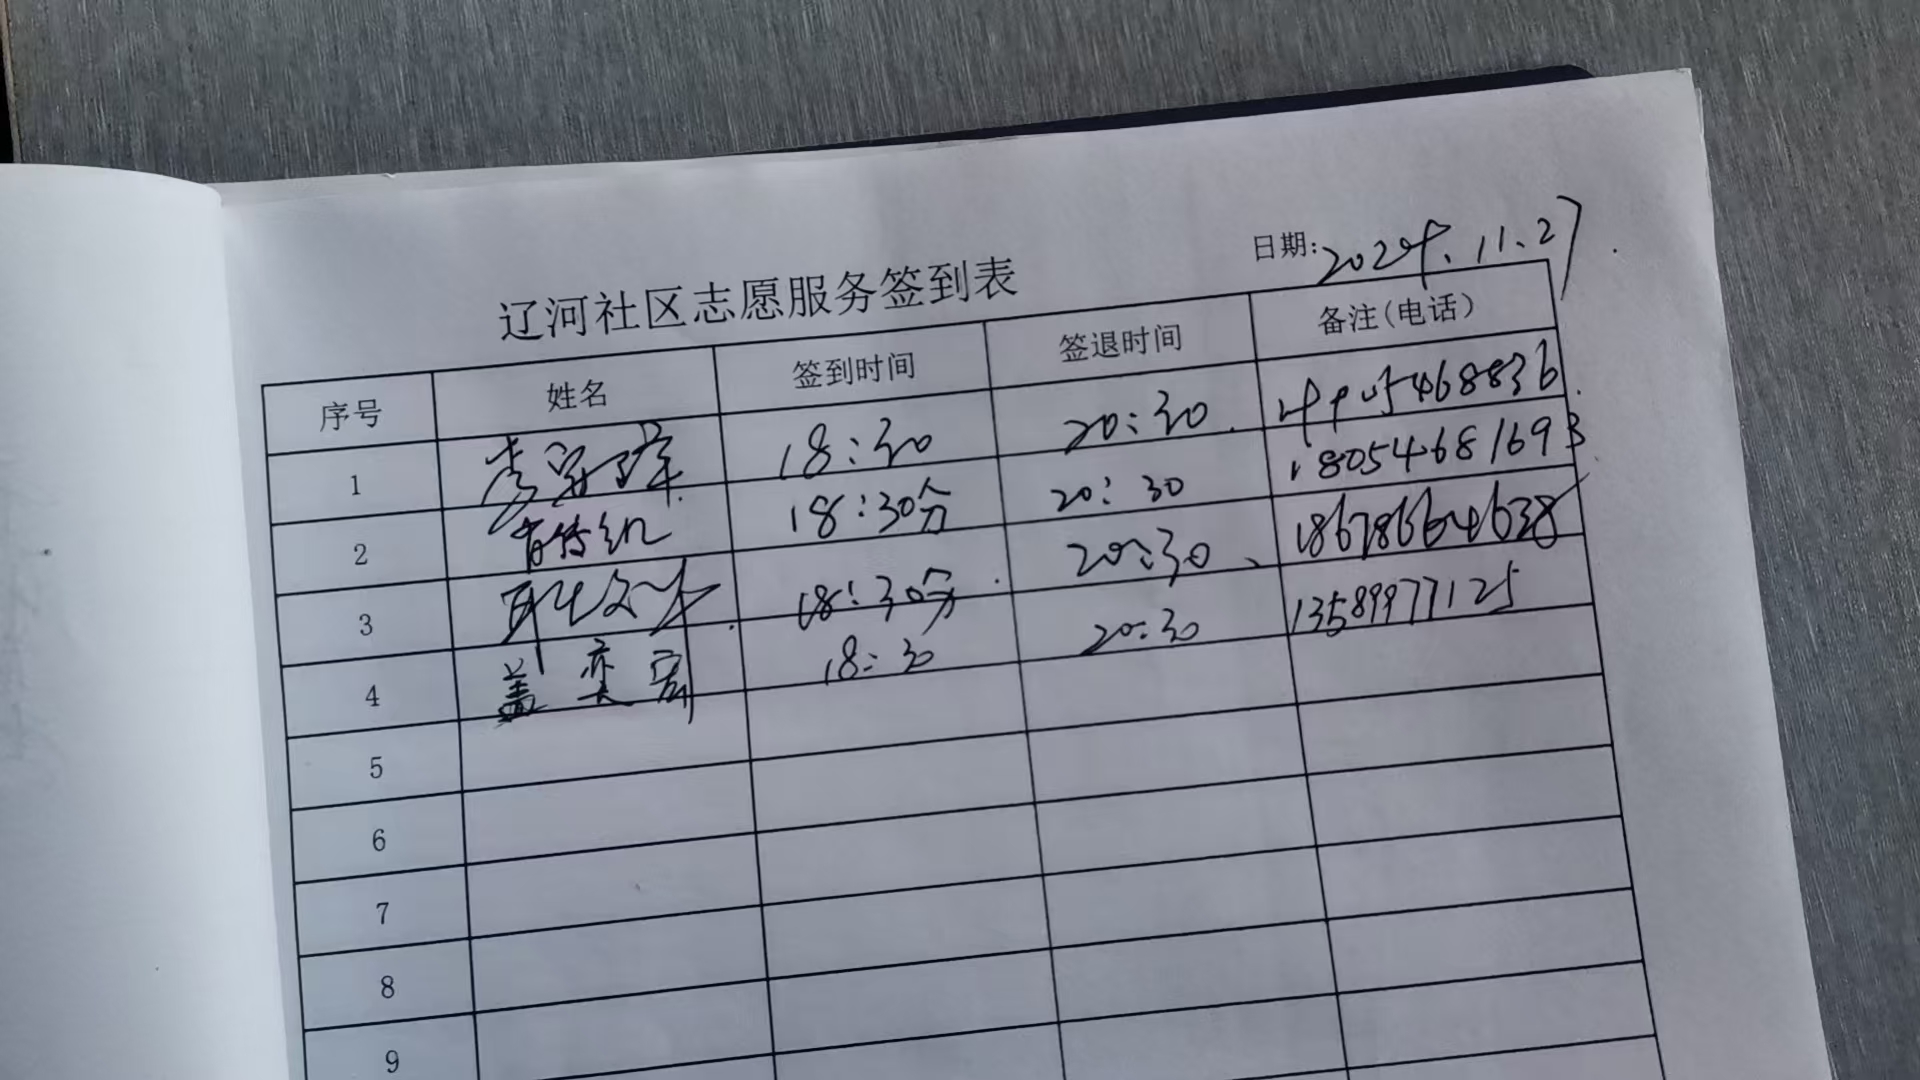 日期: 2024. 11. 27.
辽河社区志愿服务签到表
序号 姓名 签到时间 签退时间 备注(电话)
1 18:30 20:30. 5468836
2 18:30分 20:30 18054681693
3 18:30分. 20:30、 18678664638
4 盖奕宏 18:30 20:30 13589977125
5
6
7
8
9